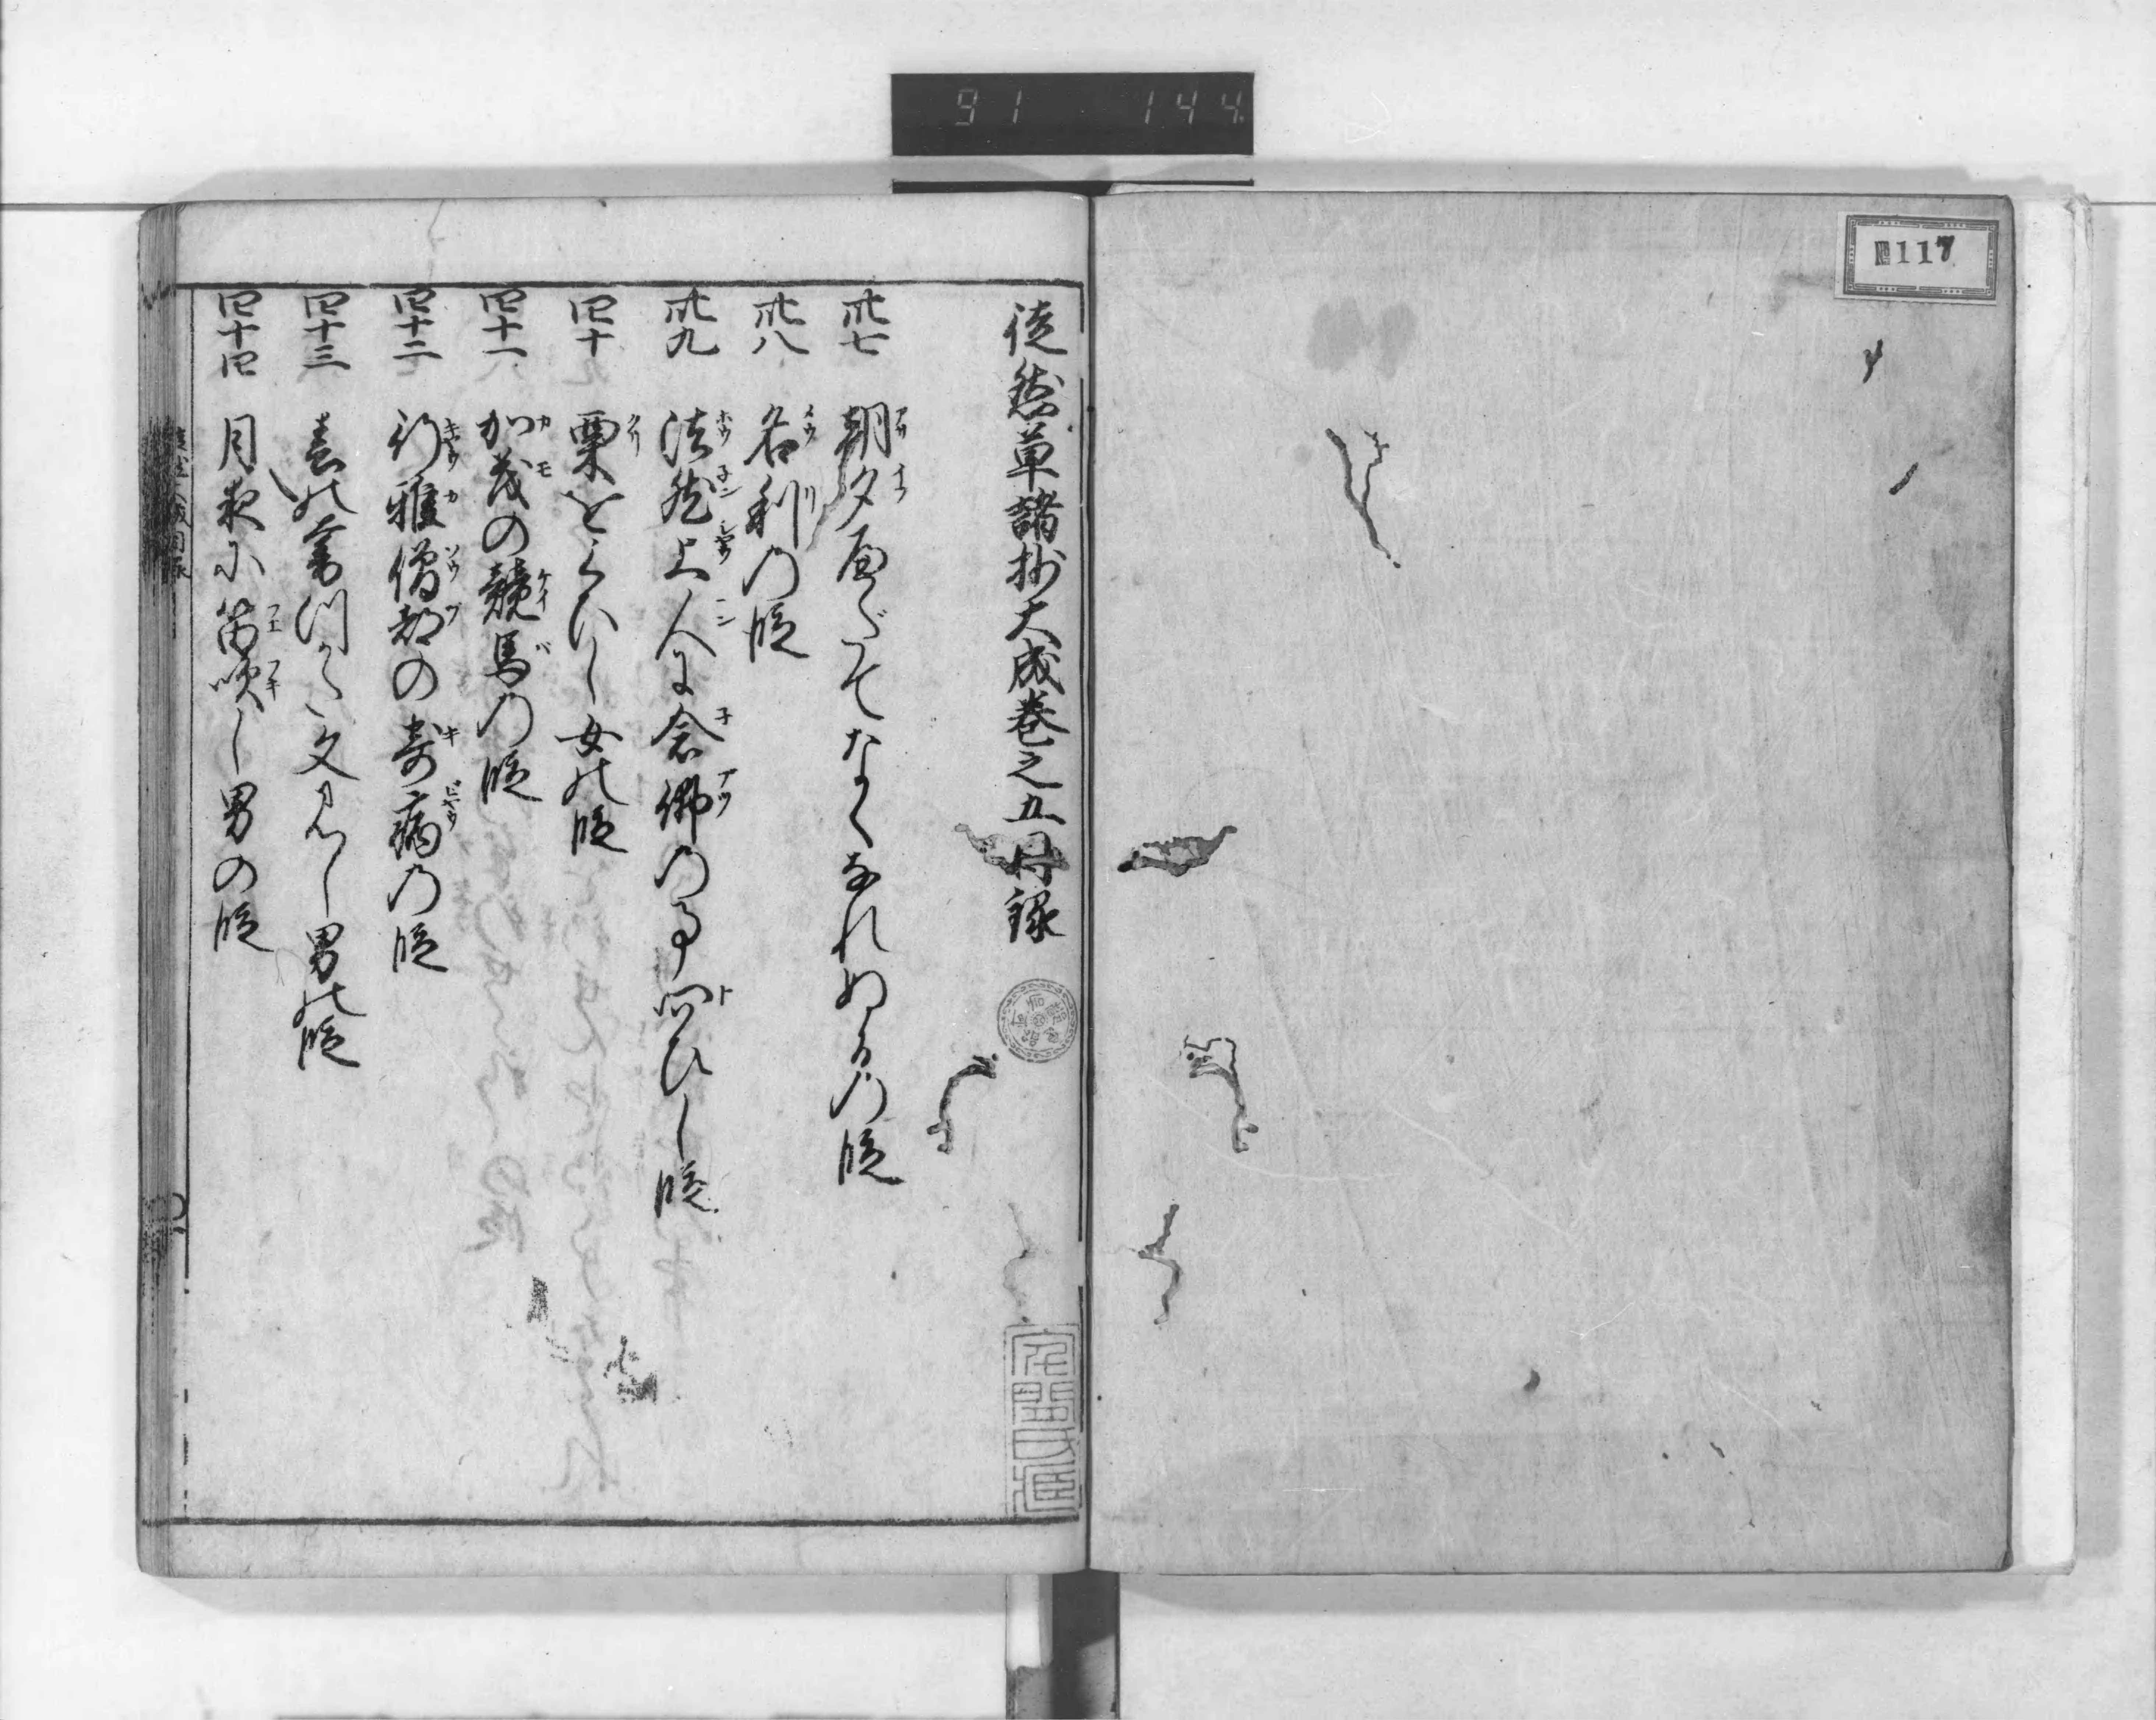 91 144
117
徒然草諸抄大成巻之五目録
卅七 朝夕へだてなくなれぬるの段
卅八 名利の段
卅九 法然上人に念仏の事問ひし段
四十 栗をくひし女の段
四十一 加茂の競馬の段
四十二 行雅僧都の奇病の段
四十三 春の暮つかた文見し男の段
四十四 月夜に笛吹し男の段